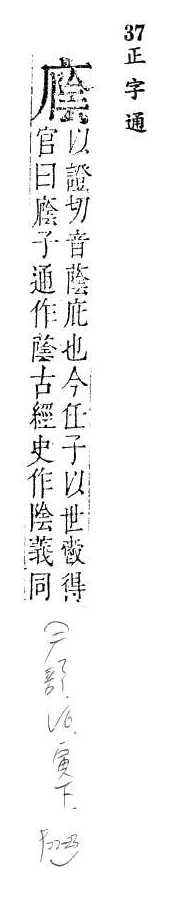 37正字通
廕
以證切音蔭庇也今任子以世得
官曰廕子通作蔭古經史作陰義同
(广部. 寅下.